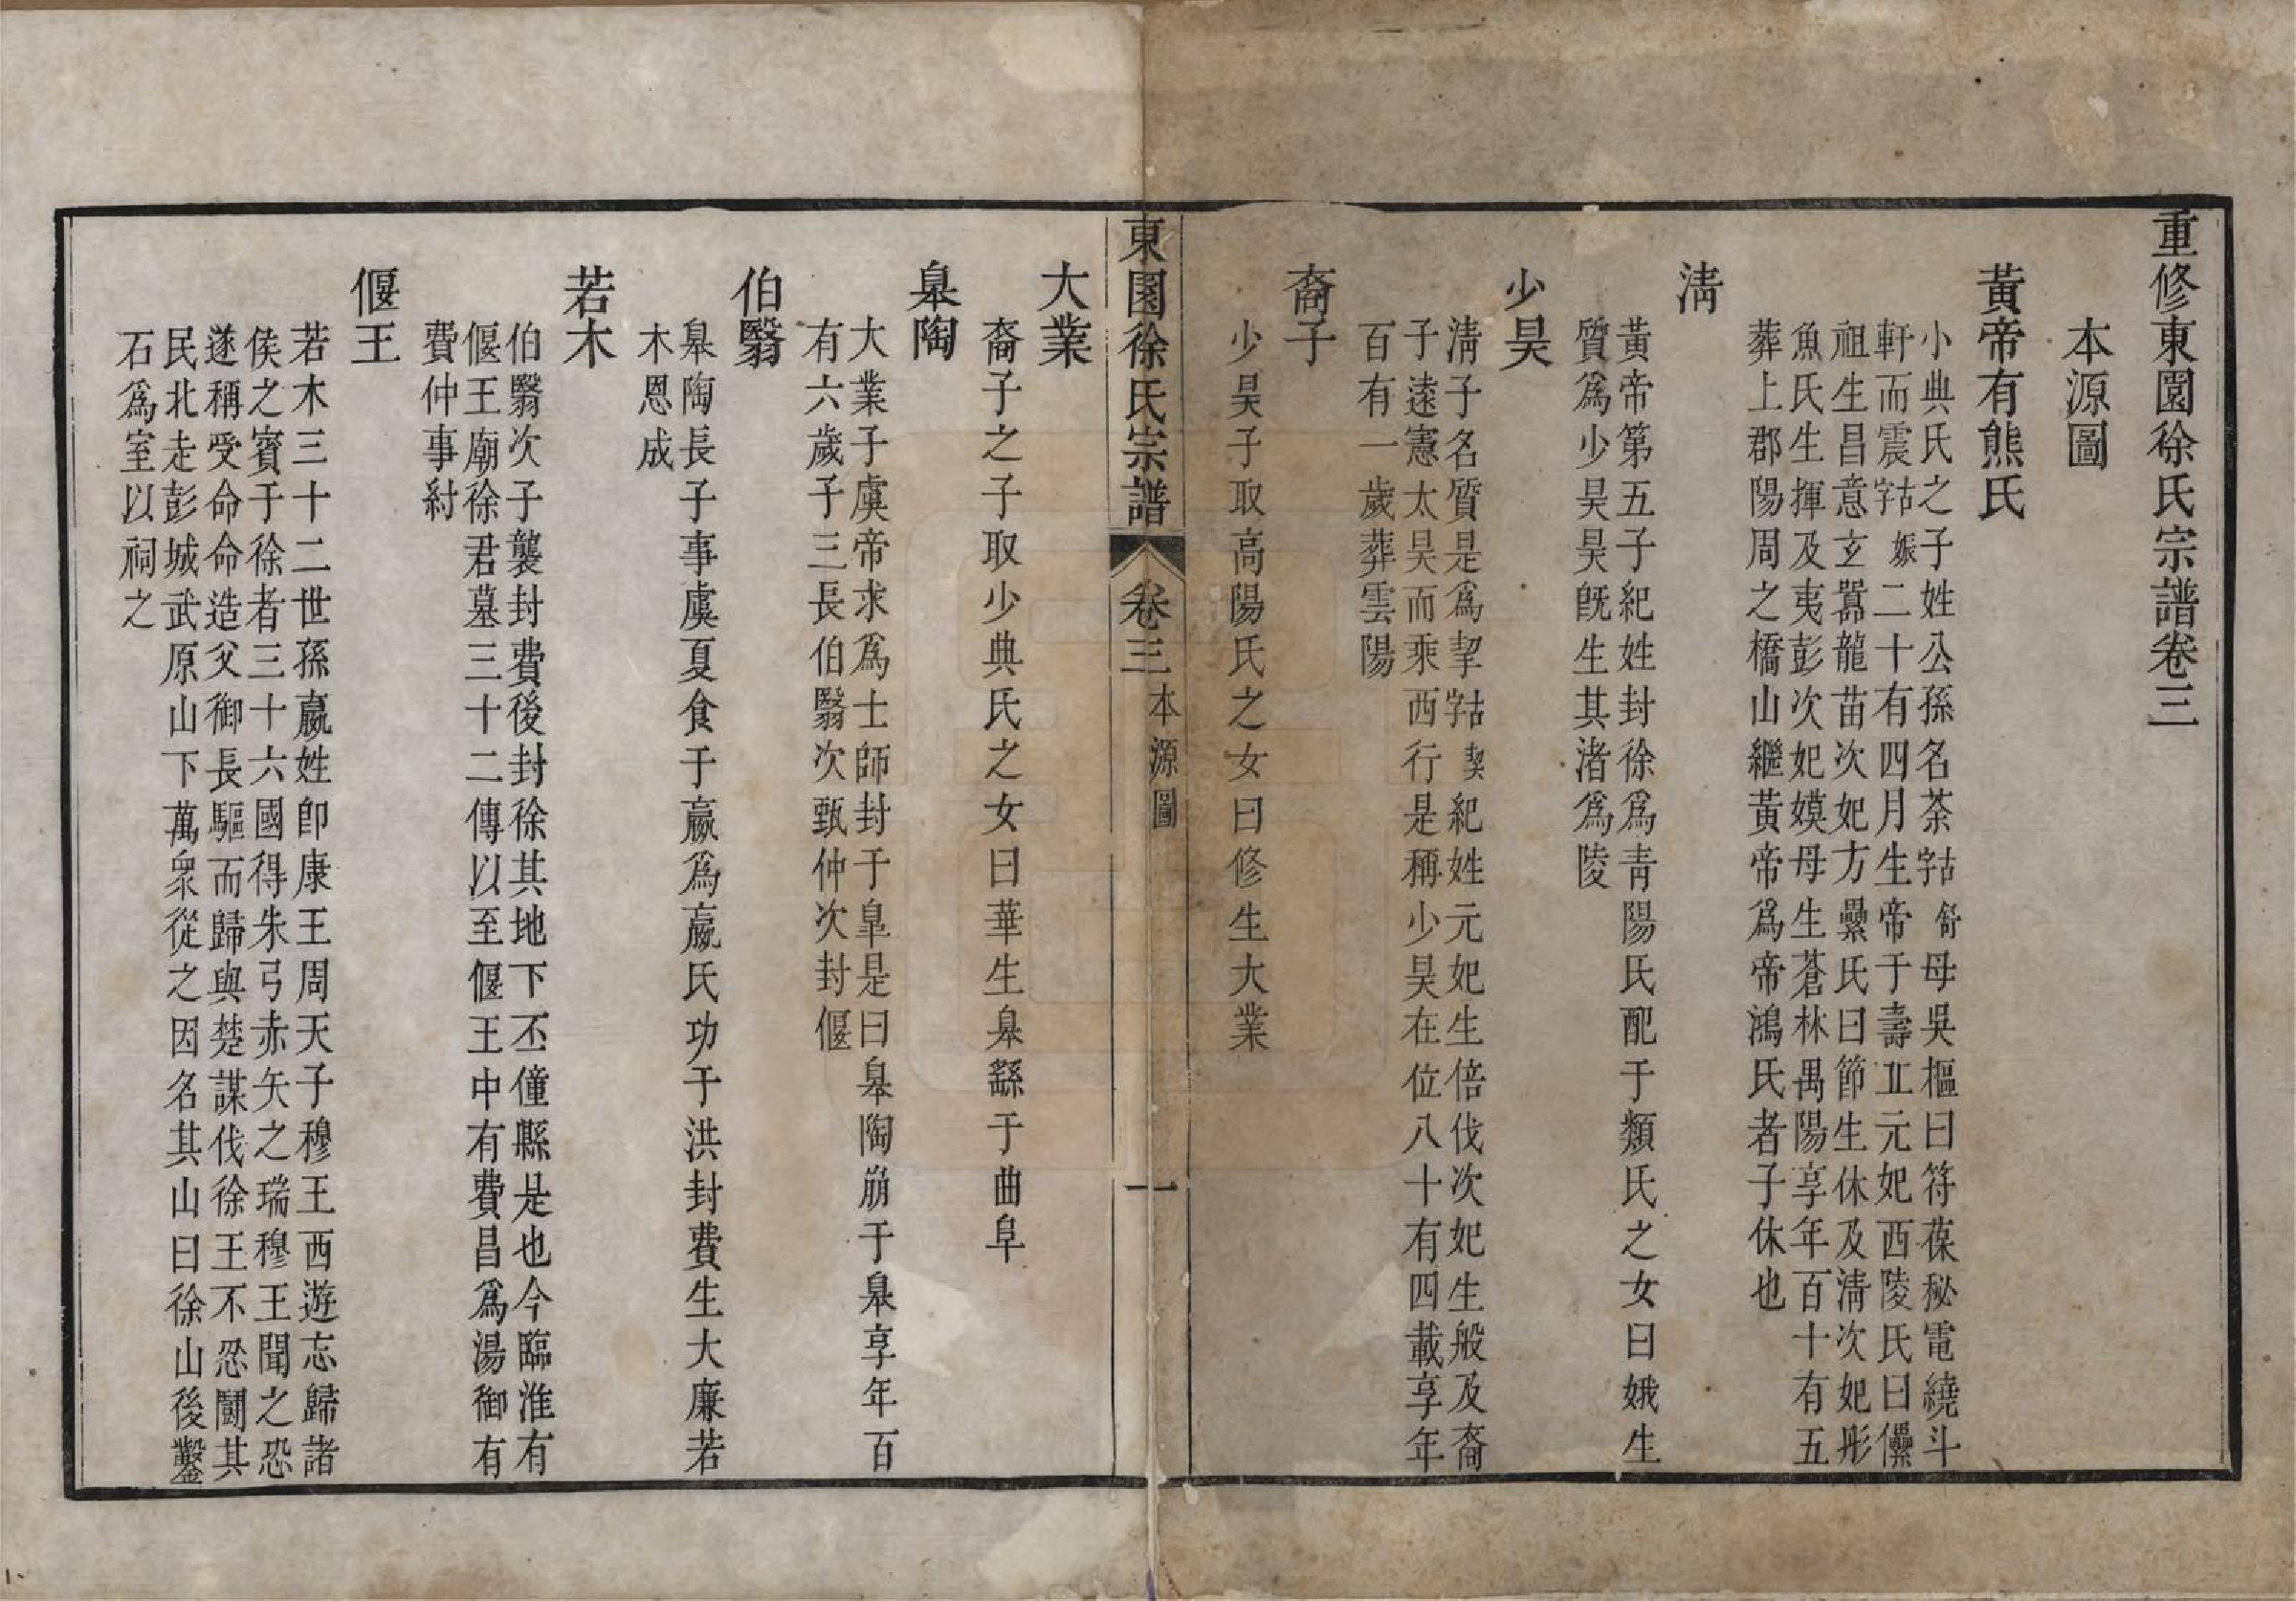 重修東園徐氏宗譜卷三
本源圖
黃帝有熊氏
小典氏之子姓公孫名荼古字舒母吳樞曰符葆秘電繞斗
軒而震古字娠二十有四月生帝于壽丘元妃西陵氏曰儽
祖生昌意玄囂龍苗次妃方纍氏曰節生休及淸次妃彤
魚氏生揮及夷彭次妃嫫母生蒼林禺陽享年百十有五
葬上郡陽周之橋山繼黃帝爲帝鴻氏者子休也
淸
黃帝第五子紀姓封徐爲靑陽氏配于類氏之女曰娥生
質爲少昊昊旣生其渚爲陵
少昊
淸子名質是爲挈古字契紀姓元妃生倍伐次妃生般及裔
子逺憲太昊而乘西行是稱少昊在位八十有四載享年
百有一歲葬雲陽
裔子
少昊子取高陽氏之女曰修生大業
東園徐氏宗譜
卷三
本源圖
一
大業
裔子之子取少典氏之女曰華生臯繇于曲阜
臯陶
大業子虞帝求爲士師封于臯是曰臯陶崩于臯享年百
有六歲子三長伯翳次甄仲次封偃
伯翳
臯陶長子事虞夏食于嬴爲嬴氏功于洪封費生大廉若
木恩成
若木
伯翳次子襲封費後封徐其地下丕僮縣是也今臨淮有
偃王廟徐君墓三十二傳以至偃王中有費昌爲湯御有
費仲事紂
偃王
若木三十二世孫嬴姓卽康王周天子穆王西遊忘歸諸
侯之賓于徐者三十六國得朱弓赤矢之瑞穆王聞之恐
遂稱受命命造父御長驅而歸與楚謀伐徐王不忍鬬其
民北走彭城武原山下萬衆從之因名其山曰徐山後鑿
石爲室以祠之